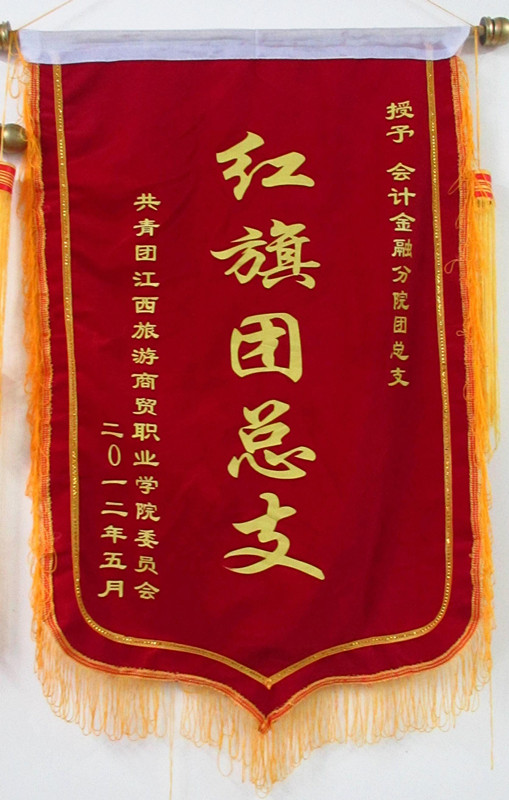 授予 会计金融分院团总支
红旗团总支
共青团江西旅游商贸职业学院委员会
二〇一二年五月